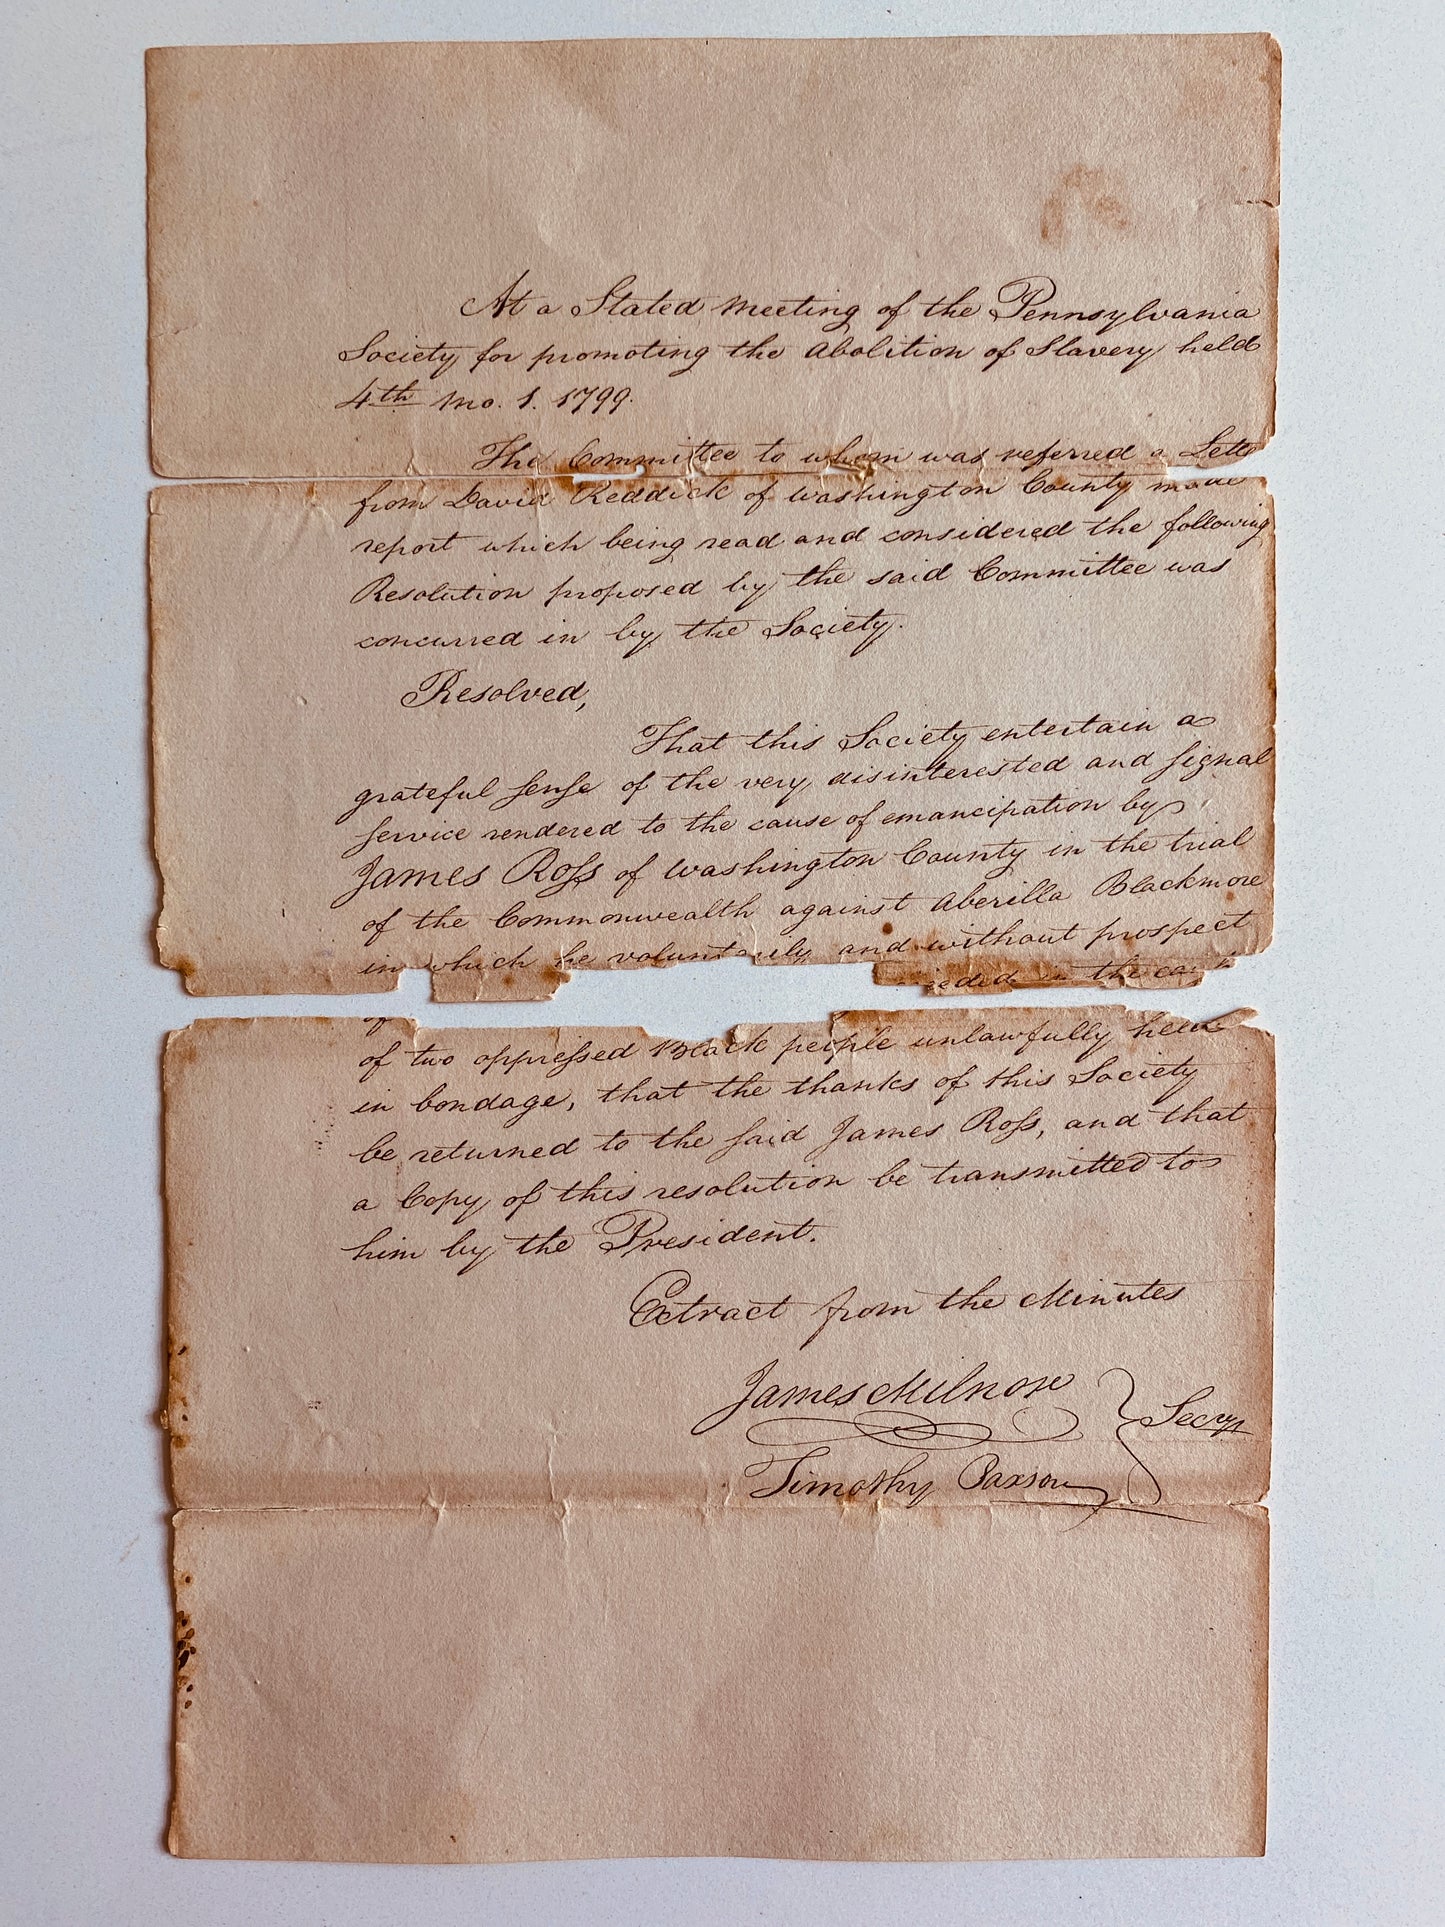 At a Stated Meeting of the Pennsylvania
Society for promoting the Abolition of Slavery held
4th Mo. 1. 1799.
The Committee to whom was referred a Lette
from David Reddick of Washington County made
report which being read and considered the following
Resolution proposed by the said Committee was
concurred in by the Society.
Resolved,
That this Society entertain a
grateful sense of the very disinterested and signal
service rendered to the cause of emancipation by
James Ross of Washington County in the trial
of the Commonwealth against Aberilla Blackmore
in which he voluntarily and without prospect
in the
of two oppressed Black people unlawfully held
in bondage, that the thanks of this Society
be returned to the said James Ross, and that
a Copy of this resolution be transmitted to
him by the President.
Extract from the Minutes
James Milnor
Secys
Timothy Paxson